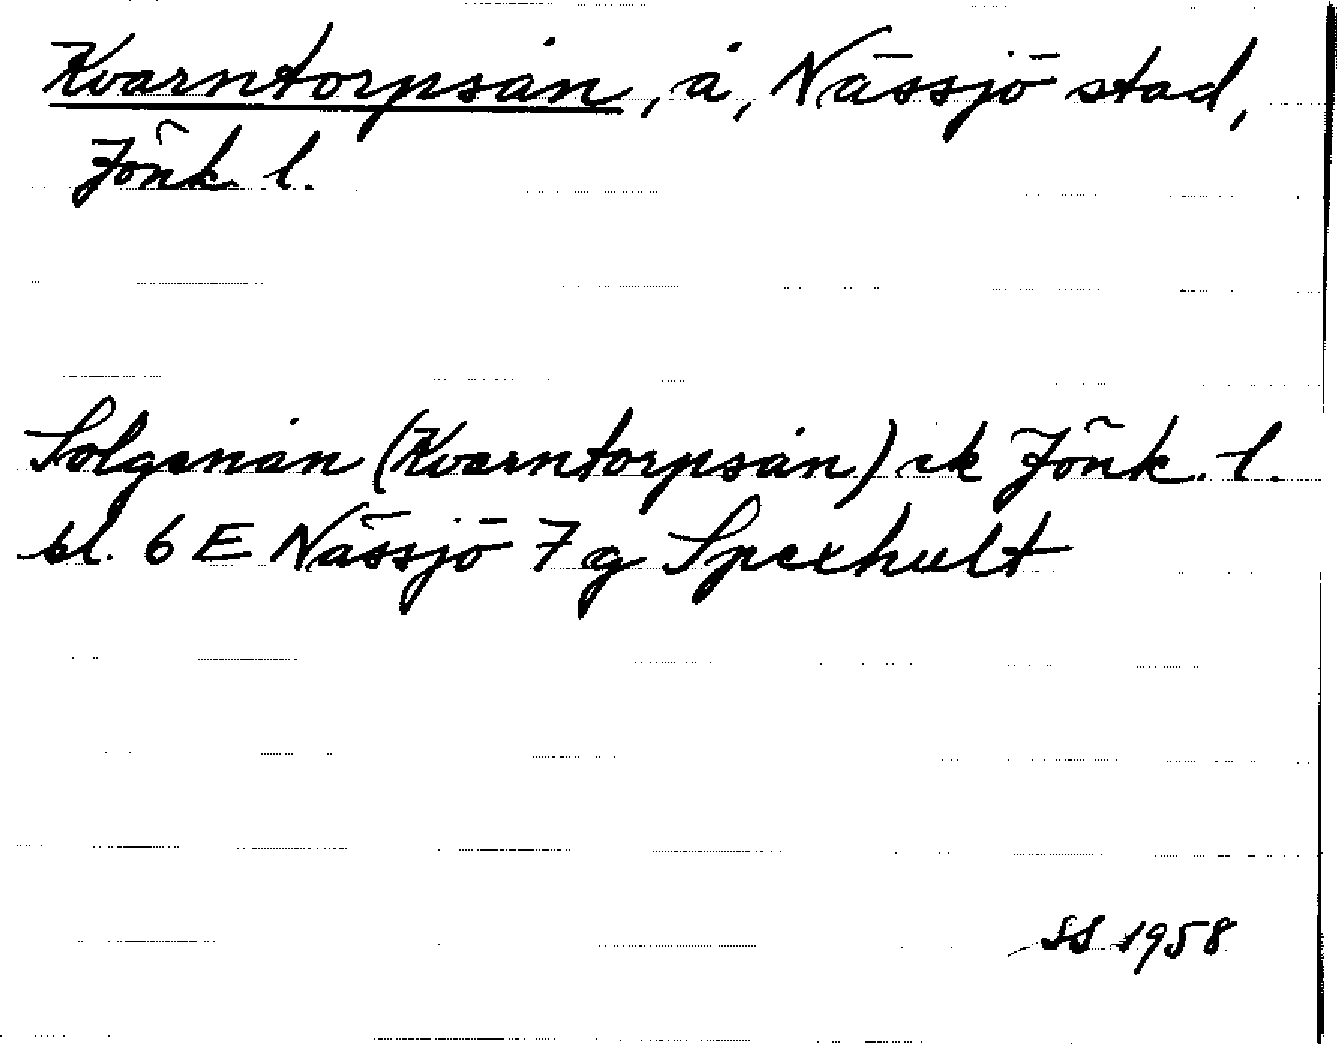 Kvarntorpsån, å, Nässjö stad,
Jönk. l.
Solgenån (Kvarntorpsån) ek Jönk. l.
bl. 6 E Nässjö 7 g Spexhult
SS 1958